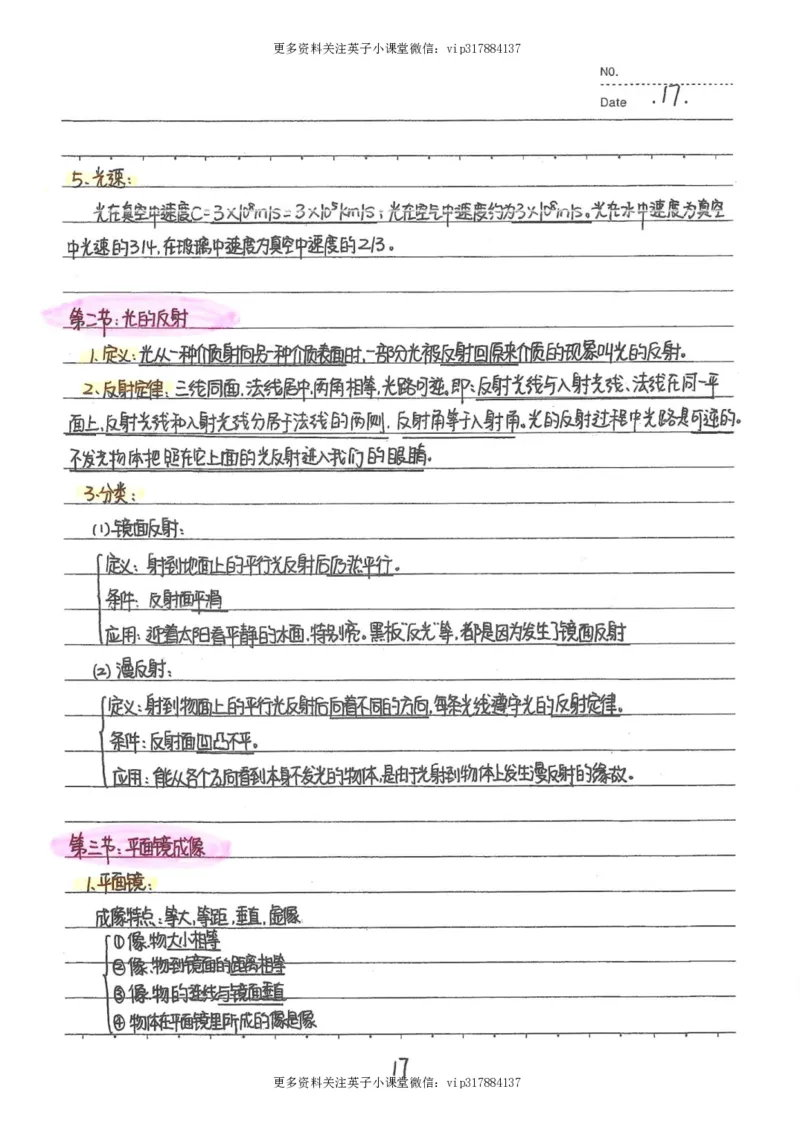 更多资料关注英子小课堂微信：vip317884137
NO.
Date .17.
5、光速：
光在真空中速度C=3×10⁸m/s=3×10⁵km/s；光在空气中速度约为3×10⁸m/s。光在水中速度为真空
中光速的3/4，在玻璃中速度为真空中速度的2/3。
第二节：光的反射
1、定义：光从一种介质射向另一种介质表面时，一部分光被反射回原来介质的现象叫光的反射。
2、反射定律：三线同面，法线居中，两角相等，光路可逆。即：反射光线与入射光线、法线在同一平
面上，反射光线和入射光线分居于法线的两侧，反射角等于入射角。光的反射过程中光路是可逆的。
不发光物体把照在它上面的光反射进入我们的眼睛。
3、分类：
(1)镜面反射：
定义：射到地面上的平行光反射后仍然平行。
条件：反射面平滑
应用：迎着太阳看平静的水面，特别亮。黑板“反光”等，都是因为发生了镜面反射
(2)漫反射：
定义：射到物面上的平行光反射后向着不同的方向，每条光线遵守光的反射定律。
条件：反射面凹凸不平。
应用：能从各个方向看到本身不发光的物体，是由于光射到物体上发生漫反射的缘故。
第三节：平面镜成像
1、平面镜：
成像特点：等大，等距，垂直，虚像
①像、物大小相等
②像、物到镜面的距离相等
③像、物的连线与镜面垂直
④物体在平面镜里所成的像是像
17
更多资料关注英子小课堂微信：vip317884137